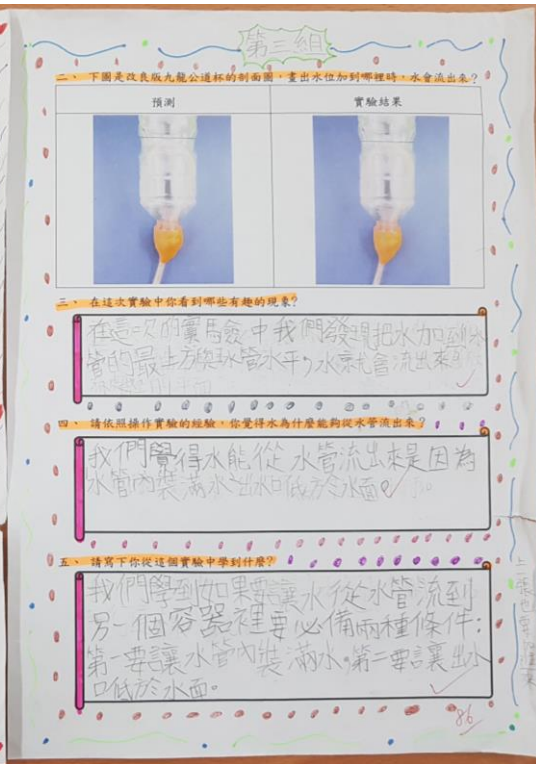 第三組
二、 下圖是改良版九龍公道杯的剖面圖，畫出水位加到哪裡時，水會流出來？
預測
實驗結果
三、 在這次實驗中你看到哪些有趣的現象？
在這一次的實驗中我們發現把水加到水
管的最上方與水管水平，水就會流出來
四、 請依照操作實驗的經驗，你覺得水為什麼能夠從水管流出來？
我們覺得水能從水管流出來是因為
水管內裝滿水，出水口低於水面。
五、 請寫下你從這個實驗中學到什麼？
我們學到如果要讓水從水管流到
另一個容器裡要必備兩種條件：
第一要讓水管內裝滿水。第二要讓出水
口低於水面。
86